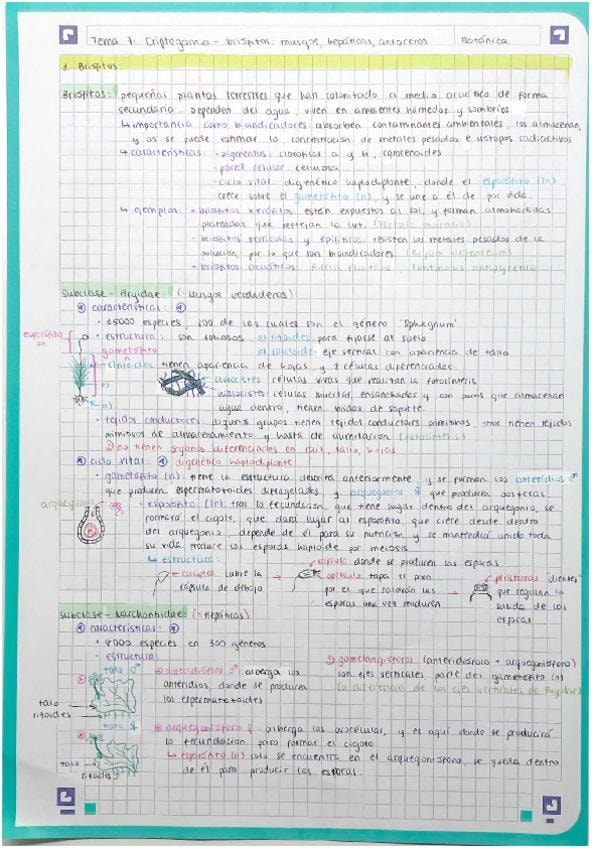 Tema 7. Criptogama - briófitos: musgos, hepáticas, antoceros Botánica
1. Briófitos
Briófitos: pequeñas plantas terrestres que han colonizado el medio acuático de forma
secundaria. Dependen del agua, viven en ambientes húmedos y sombríos.
↳ importancia como bioindicadores: absorben contaminantes ambientales, los almacenan,
y así se puede estimar la concentración de metales pesados e isótopos radiactivos
↳ características: - pigmentos: clorofilas a y b, carotenoides
- pared celular: celulosa
- ciclo vital: digenético haplodiplonte, donde el esporófito (2n)
crece sobre el gametófito (n), y se une a él de por vida.
↳ ejemplos: - briófitos xerófilos: están expuestos al sol, y forman almohadillas
plateadas que reflejan la luz. (Tortula muralis)
- briófitos terrícolas y epífitos: resisten los metales pesados de la
polución, por lo que son bioindicadores. (Bryum argenteum)
- briófitos acuáticos: Riccia fluitans, Fontinalis antipyretica
Subclase - Bryidae: (= Musgos verdaderos)
características:
· 15000 especies, 200 de las cuales son el género "Sphagnum"
esporófito 2n · estructura: son foliosos a) rizoides para fijarse al suelo
gametófito n b) cauloide: eje vertical con apariencia de tallo
c) filoides: tienen apariencia de hojas, y 2 células diferenciadas:
clorocistes: células vivas que realizan la fotosíntesis
hialocistes: células muertas, ensanchadas y con poros que almacenan
agua dentro, tienen bridas de soporte.
· tejidos conductores: algunos grupos tienen tejidos conductores primitivos, otros tienen tejidos
primitivos de almacenamiento y hasta de asimilación (fotosíntesis)
no tienen órganos diferenciados en raíz, tallo, hojas
ciclo vital: digenético haplodiplonte
· gametófito (n): tiene la estructura descrita anteriormente, y se forman los anteridios ♂
que producen espermatozoides biflagelados, y arquegonios ♀ que producen oosferas.
arquegonio · esporófito (2n): tras la fecundación, que tiene lugar dentro del arquegonio, se
formará el cigoto, que dará lugar al esporófito, que crece desde dentro
del arquegonio, depende de él para su nutrición y se mantendrá unido toda
su vida. Produce las esporas haploides por meiosis
↳ estructura: cápsula: donde se producen las esporas
caliptra: cubre la opérculo: tapa el poro peristomas: "dientes"
cápsula de debajo por el que saldrán las que regulan la
esporas una vez maduren salida de las
esporas
Subclase - Marchantiidae: (= Hepáticas)
características:
· 8000 especies en 300 géneros
· estructura:
talo ♂ anteridióforo ♂: alberga los gametangióforos (anteridióforo + arquegonióforo)
anteridios, donde se producen son ejes verticales, parte del gametófito (n)
talo los espermatozoides (a diferencia de los ejes verticales de Bryidae)
rizoides
talo ♀ arquegonióforo ♀: alberga las ovocélulas, y es aquí donde se producirá
la fecundación para formar el cigoto
talo ↳ esporófito (n): solo se encuentra en el arquegonióforo, se queda dentro
rizoides de él para producir las esporas.